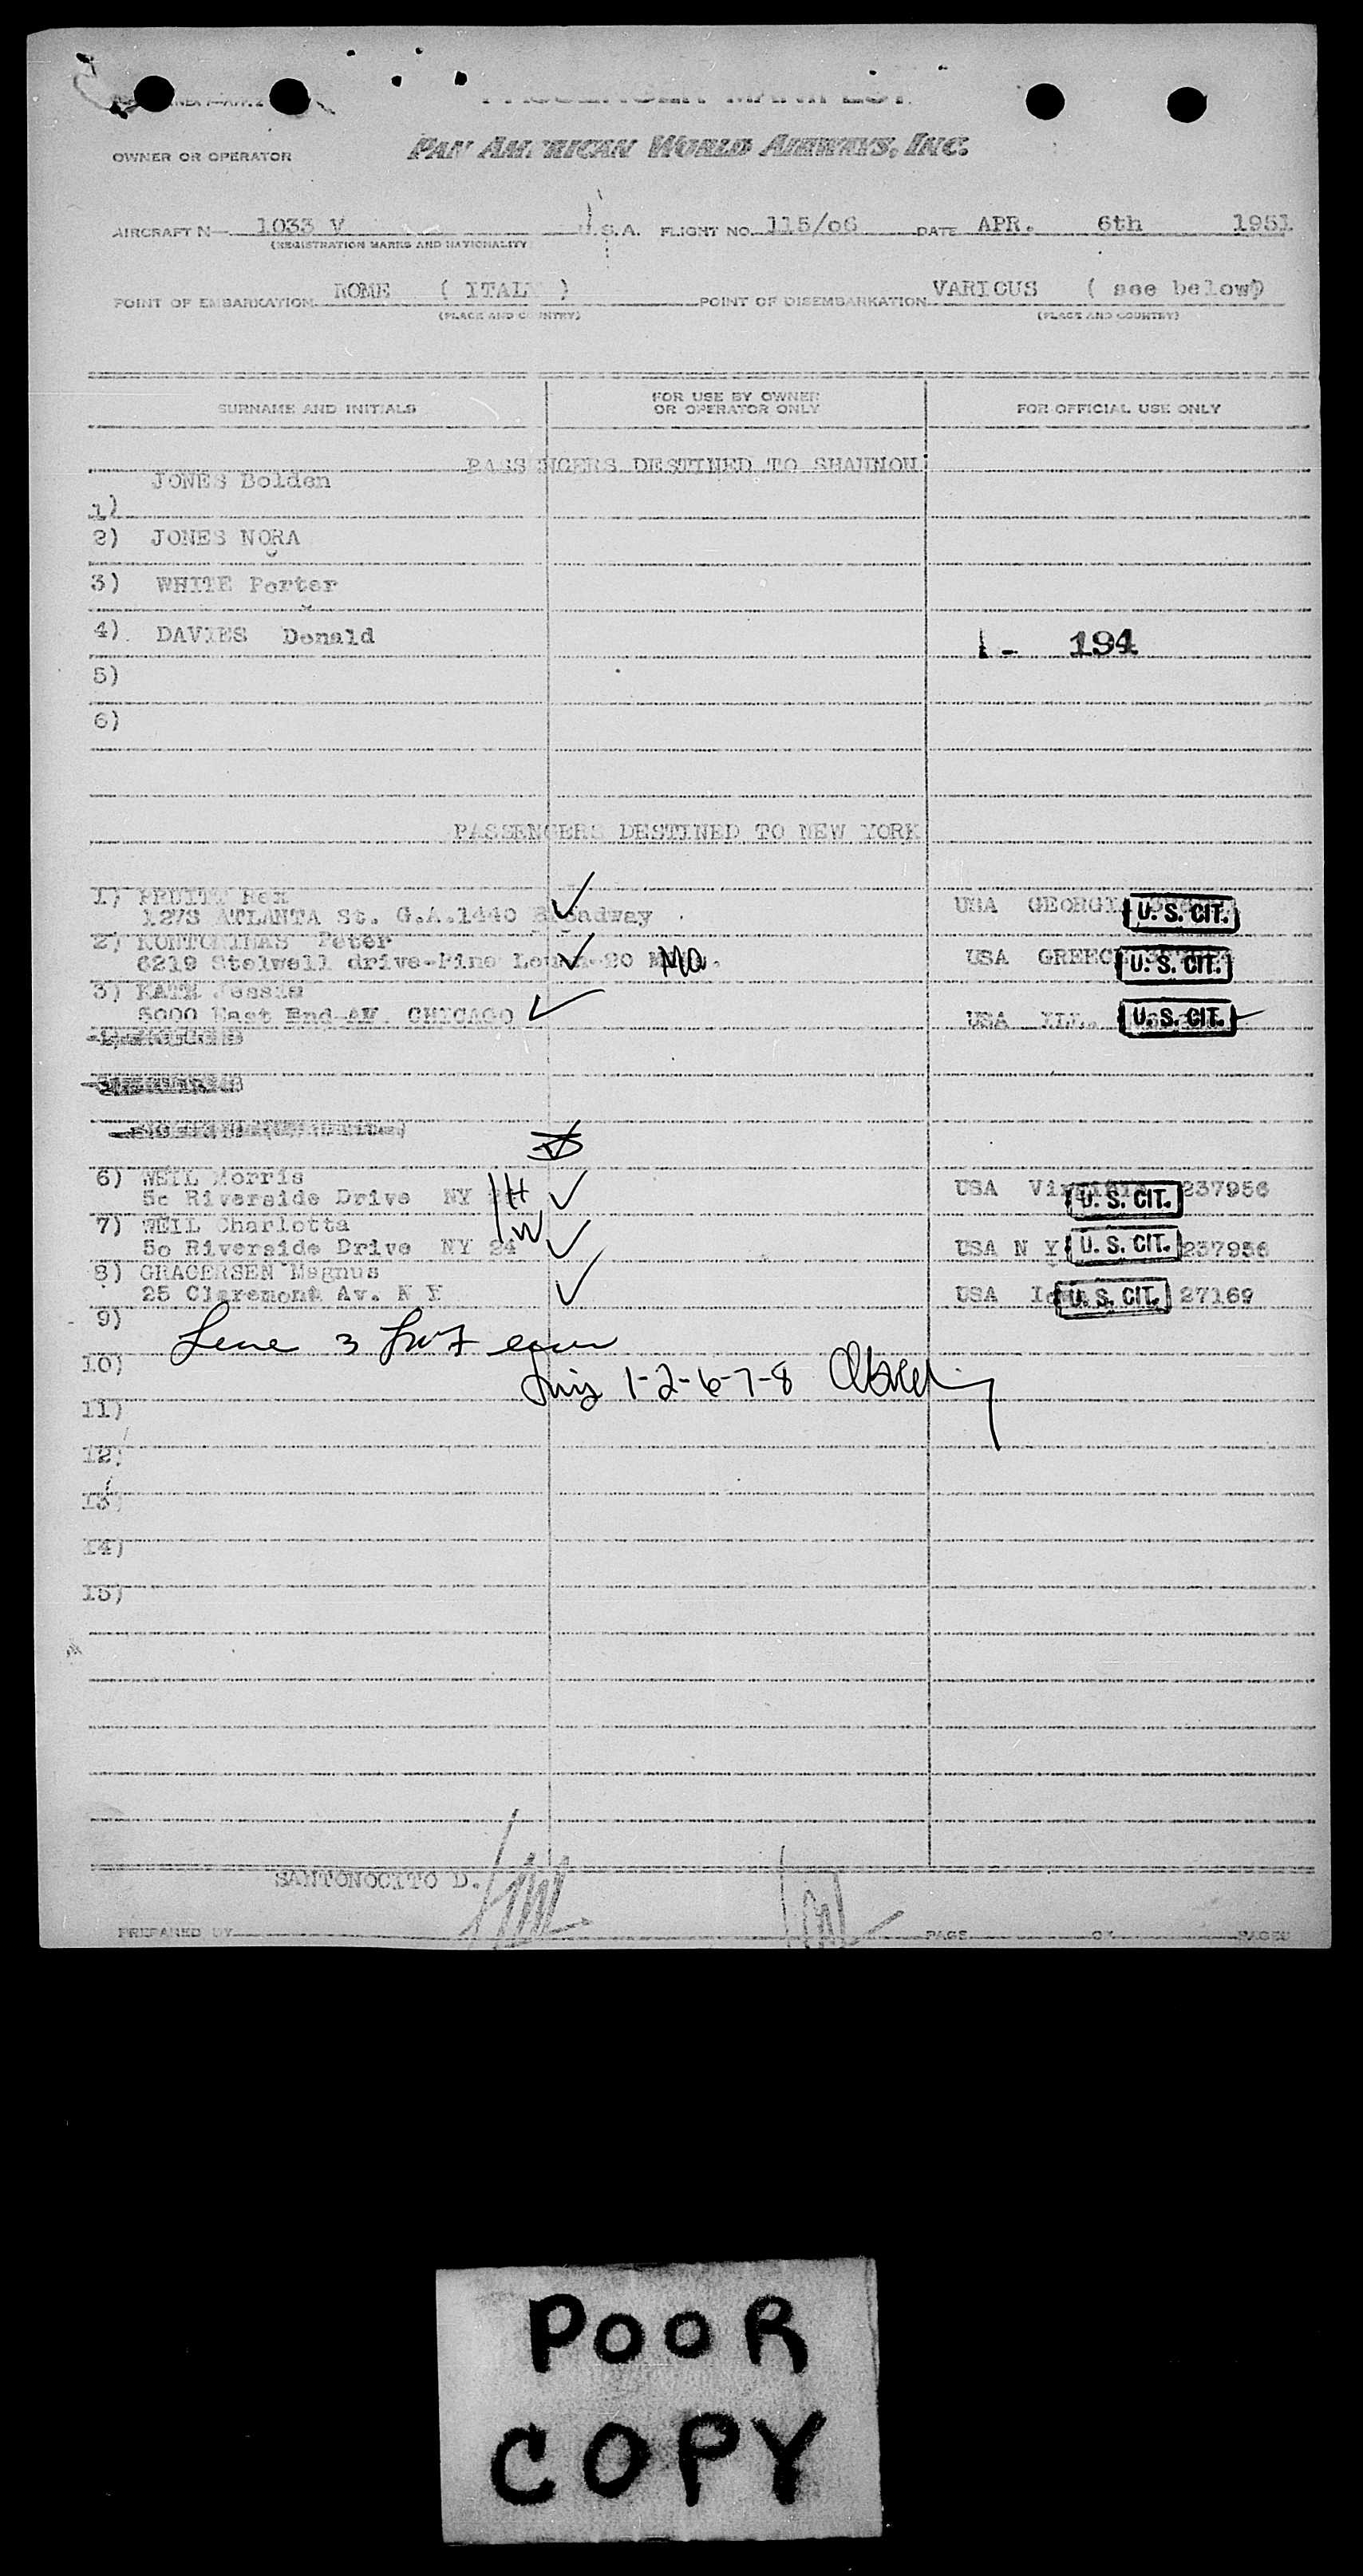 PASSENGER MANIFEST
OWNER OR OPERATOR PAN AMERICAN WORLD AIRWAYS, INC.
AIRCRAFT N 1033 V U.S.A. FLIGHT NO. 115/06 DATE APR. 6th 1951
(REGISTRATION MARKS AND NATIONALITY)
POINT OF EMBARKATION ROME ( ITALY ) POINT OF DISEMBARKATION VARIOUS ( see below)
(PLACE AND COUNTRY) (PLACE AND COUNTRY)
SURNAME AND INITIALS FOR USE BY OWNER OR OPERATOR ONLY FOR OFFICIAL USE ONLY
PASSENGERS DESTINED TO SHANNON
1) JONES Bolden
2) JONES NORA
3) WHITE Porter
4) DAVIES Donald 1- 194
5)
6)
PASSENGERS DESTINED TO NEW YORK
1) PRUITT Rex
1273 ATLANTA St. G.A.1440 Broadway USA GEORGIA U. S. CIT.
2) Peter
6219 Stelwell drive-Pine 20 MO. USA GREECE U. S. CIT.
3) KATE Jessie
5000 East End AV. CHICAGO USA ILL. U. S. CIT.
6) WEIL Morris
50 Riverside Drive NY H USA Virginia U. S. CIT. 237956
7) WEIL Charlotta
50 Riverside Drive NY 24 W USA N Y U. S. CIT. 237956
8) Magnus
25 Claremont Av. N Y USA Iowa U. S. CIT. 27169
9)
10) 3
1-2-6-7-8
11)
12)
13)
14)
15)
SANTONOCITO D.
PREPARED BY PAGE OF PAGES
POOR
COPY